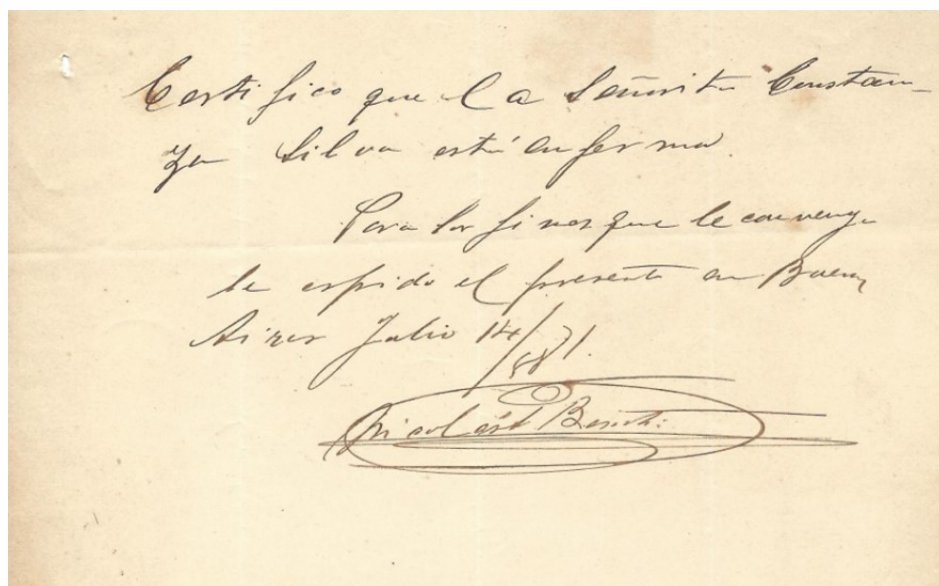 Certifico que la Señorita Constan-
za Silva está enferma.
Para los fines que le convenga
le espido el presente en Buenos
Aires Julio 14/
Nicolás